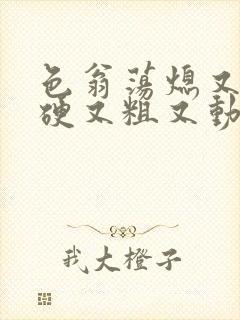 色翁荡熄又
硬又粗又動
我大橙子